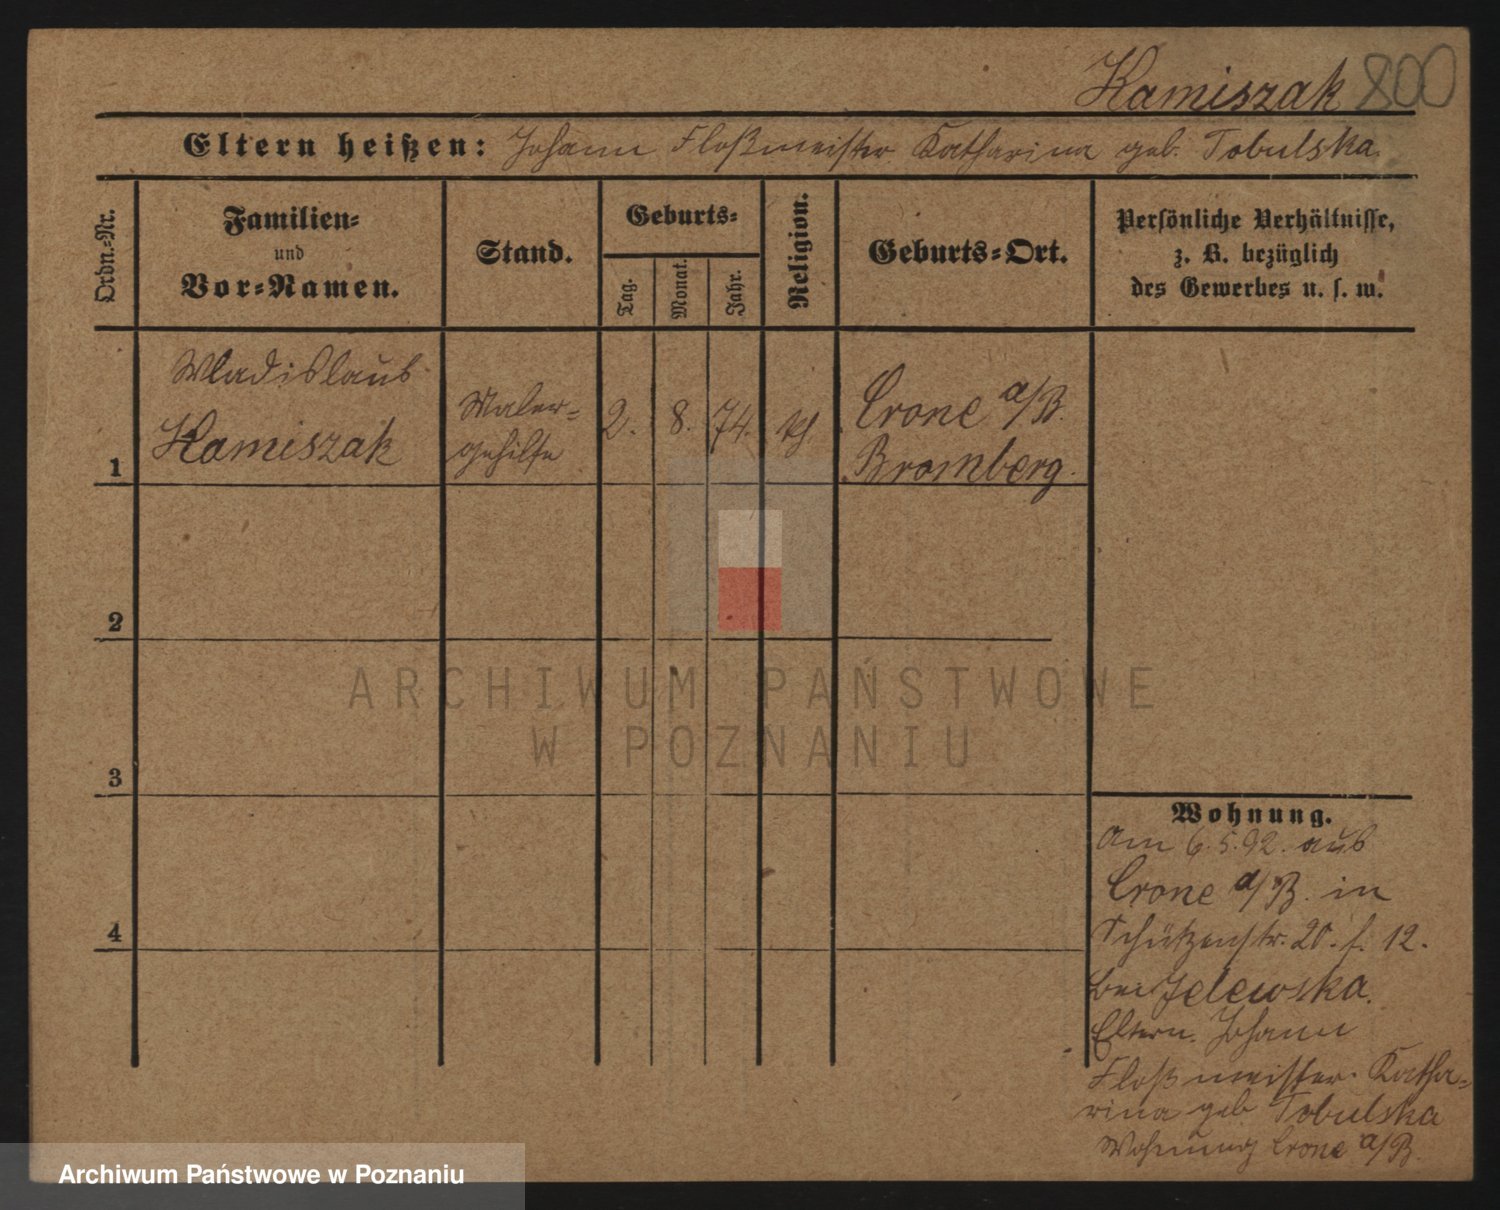 Kamiszak 800
Eltern heißen: Johann Floßmeister Katharina geb. Tobulska
Ordn.-Nr.
Familien-
und
Vor-Namen.
Stand.
Geburts-
Tag.
Monat.
Jahr.
Religion.
Geburts-Ort.
Persönliche Verhältnisse,
z. B. bezüglich
des Gewerbes u. s. w.
1
Wladislaus
Kamiszak
Maler-
gehilfe
2. 8. 74. kth.
Crone a/B.
Bromberg.
2
3
4
Wohnung.
Am 6.5.92. aus
Crone a/B. in
Schützenstr. 20. f. 12.
bei Jelewska.
Eltern. Johann
Floßmeister. Katha-
rina geb Tobulska
Wohnung Crone a/B.
ARCHIWUM PAŃSTWOWE
W POZNANIU
Archiwum Państwowe w Poznaniu